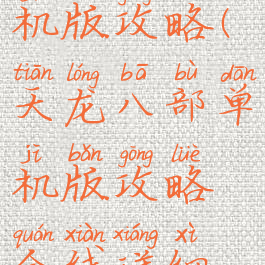 机版攻略(
tiān lóng bā bù dān
天龙八部单
jī bǎn gōng lüè
机版攻略
quán xiàn xiáng xì